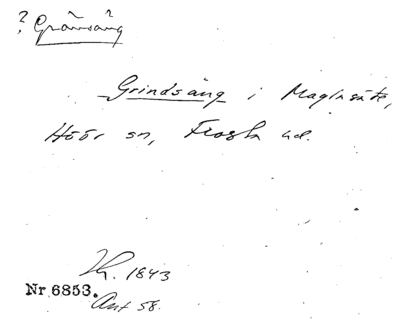 ? Gränsäng
Grindsäng i Maglasäte,
Höör sn, Frosta hd.
1843
Nr 6853.
Ant 58.